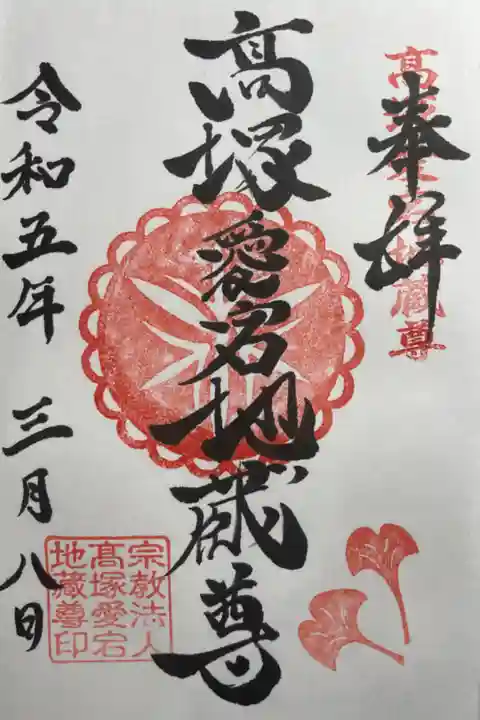 奉拝
高塚愛宕地蔵尊
高塚愛宕地蔵尊
令和五年 三月八日
宗教法人
高塚愛宕
地蔵尊印